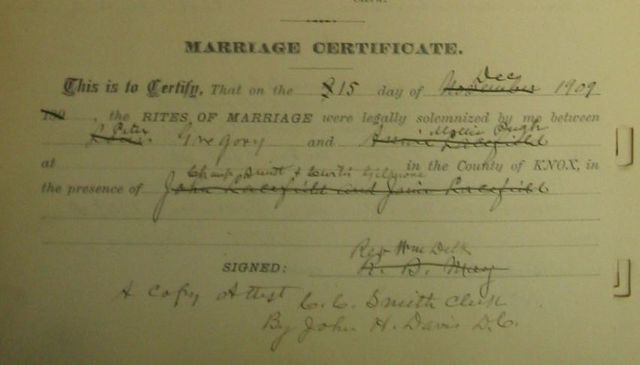 MARRIAGE CERTIFICATE.
This is to Certify, That on the 15 day of November Dec 1909
190 , the RITES OF MARRIAGE were legally solemnized by me between
Peter Gregory and Annie Lacefield Mollie Pugh
at in the County of KNOX, in
Champ Swett & Curtis Gilpione
the presence of John Lacefield and Janie Lacefield
Rev Wm Delk
SIGNED: R. B. May
A copy Attest C. C. Smith Clerk
By John H. Davis D.C.